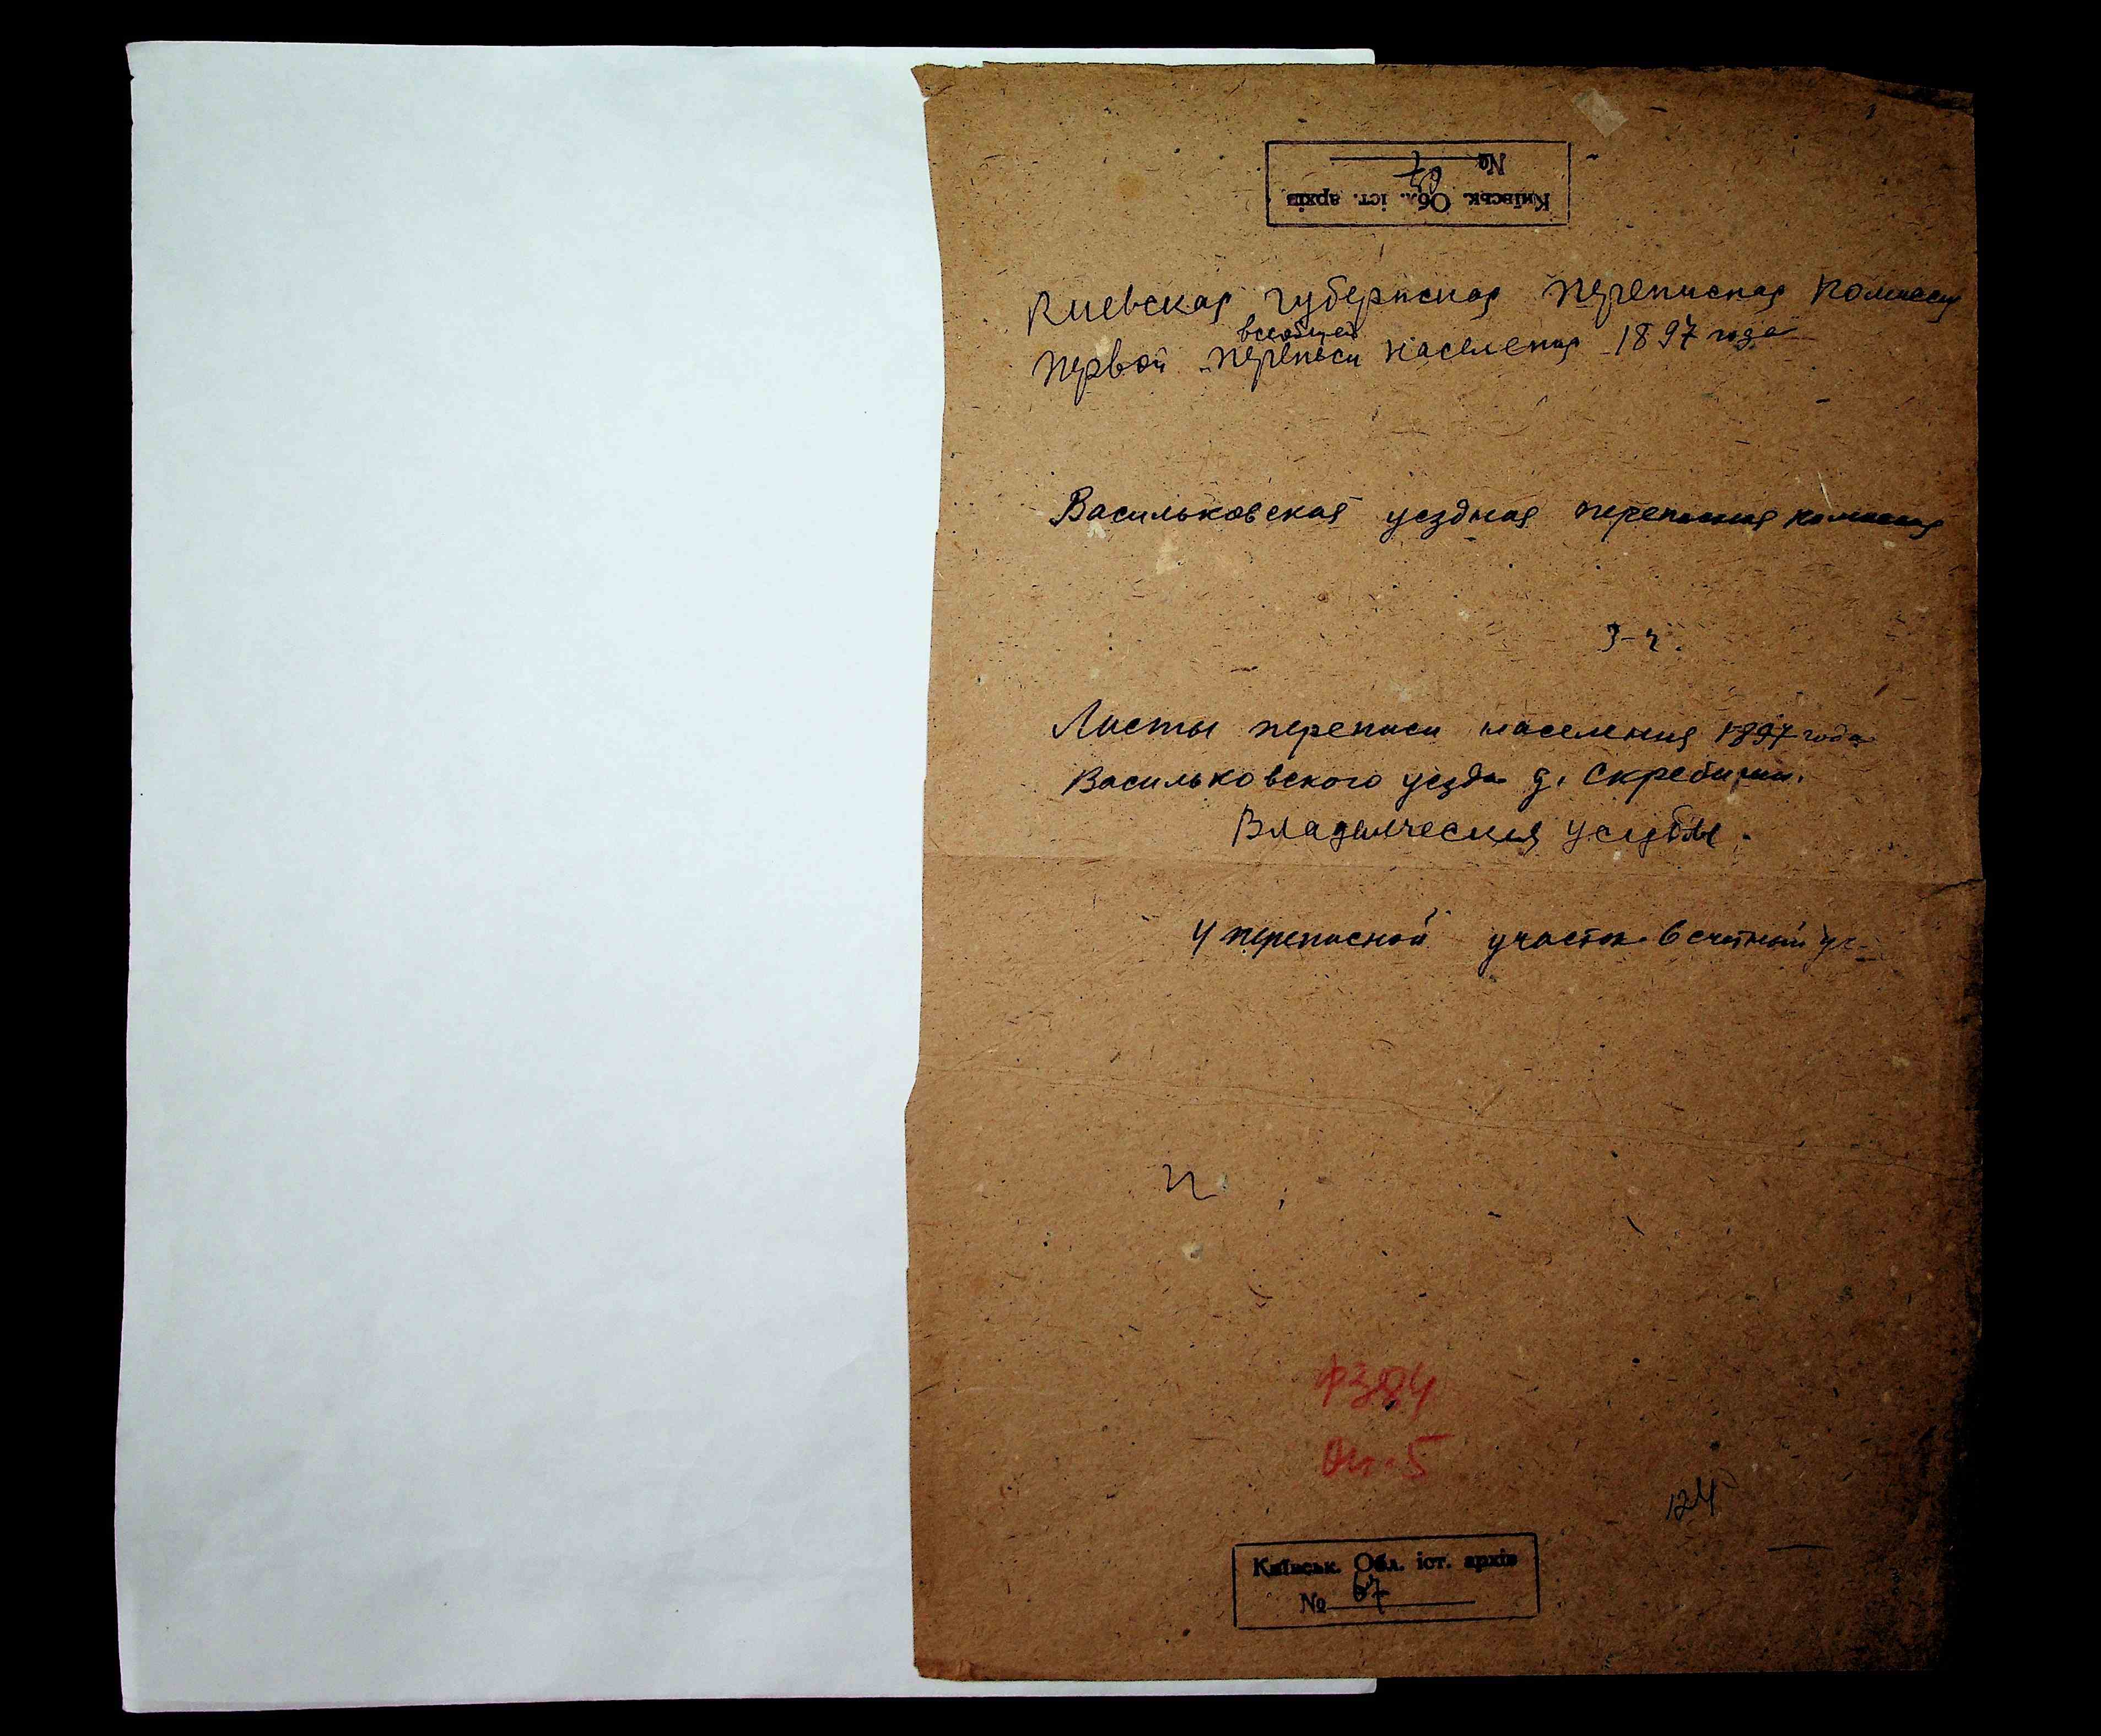 Київськ. Обл. іст. архів
№ 67
Киевская губернская переписная комиссия
первой всеобщей переписи населения 1897 года
Васильковская уездная переписная комиссия
Листы переписи населения 1897 года
Васильковского уезда д. Скребиши.
Владельческая усадьба.
4 переписной участок 6 счетный уч-
Ф384
Оп. 5
124
Київськ. Обл. іст. архів
№ 67